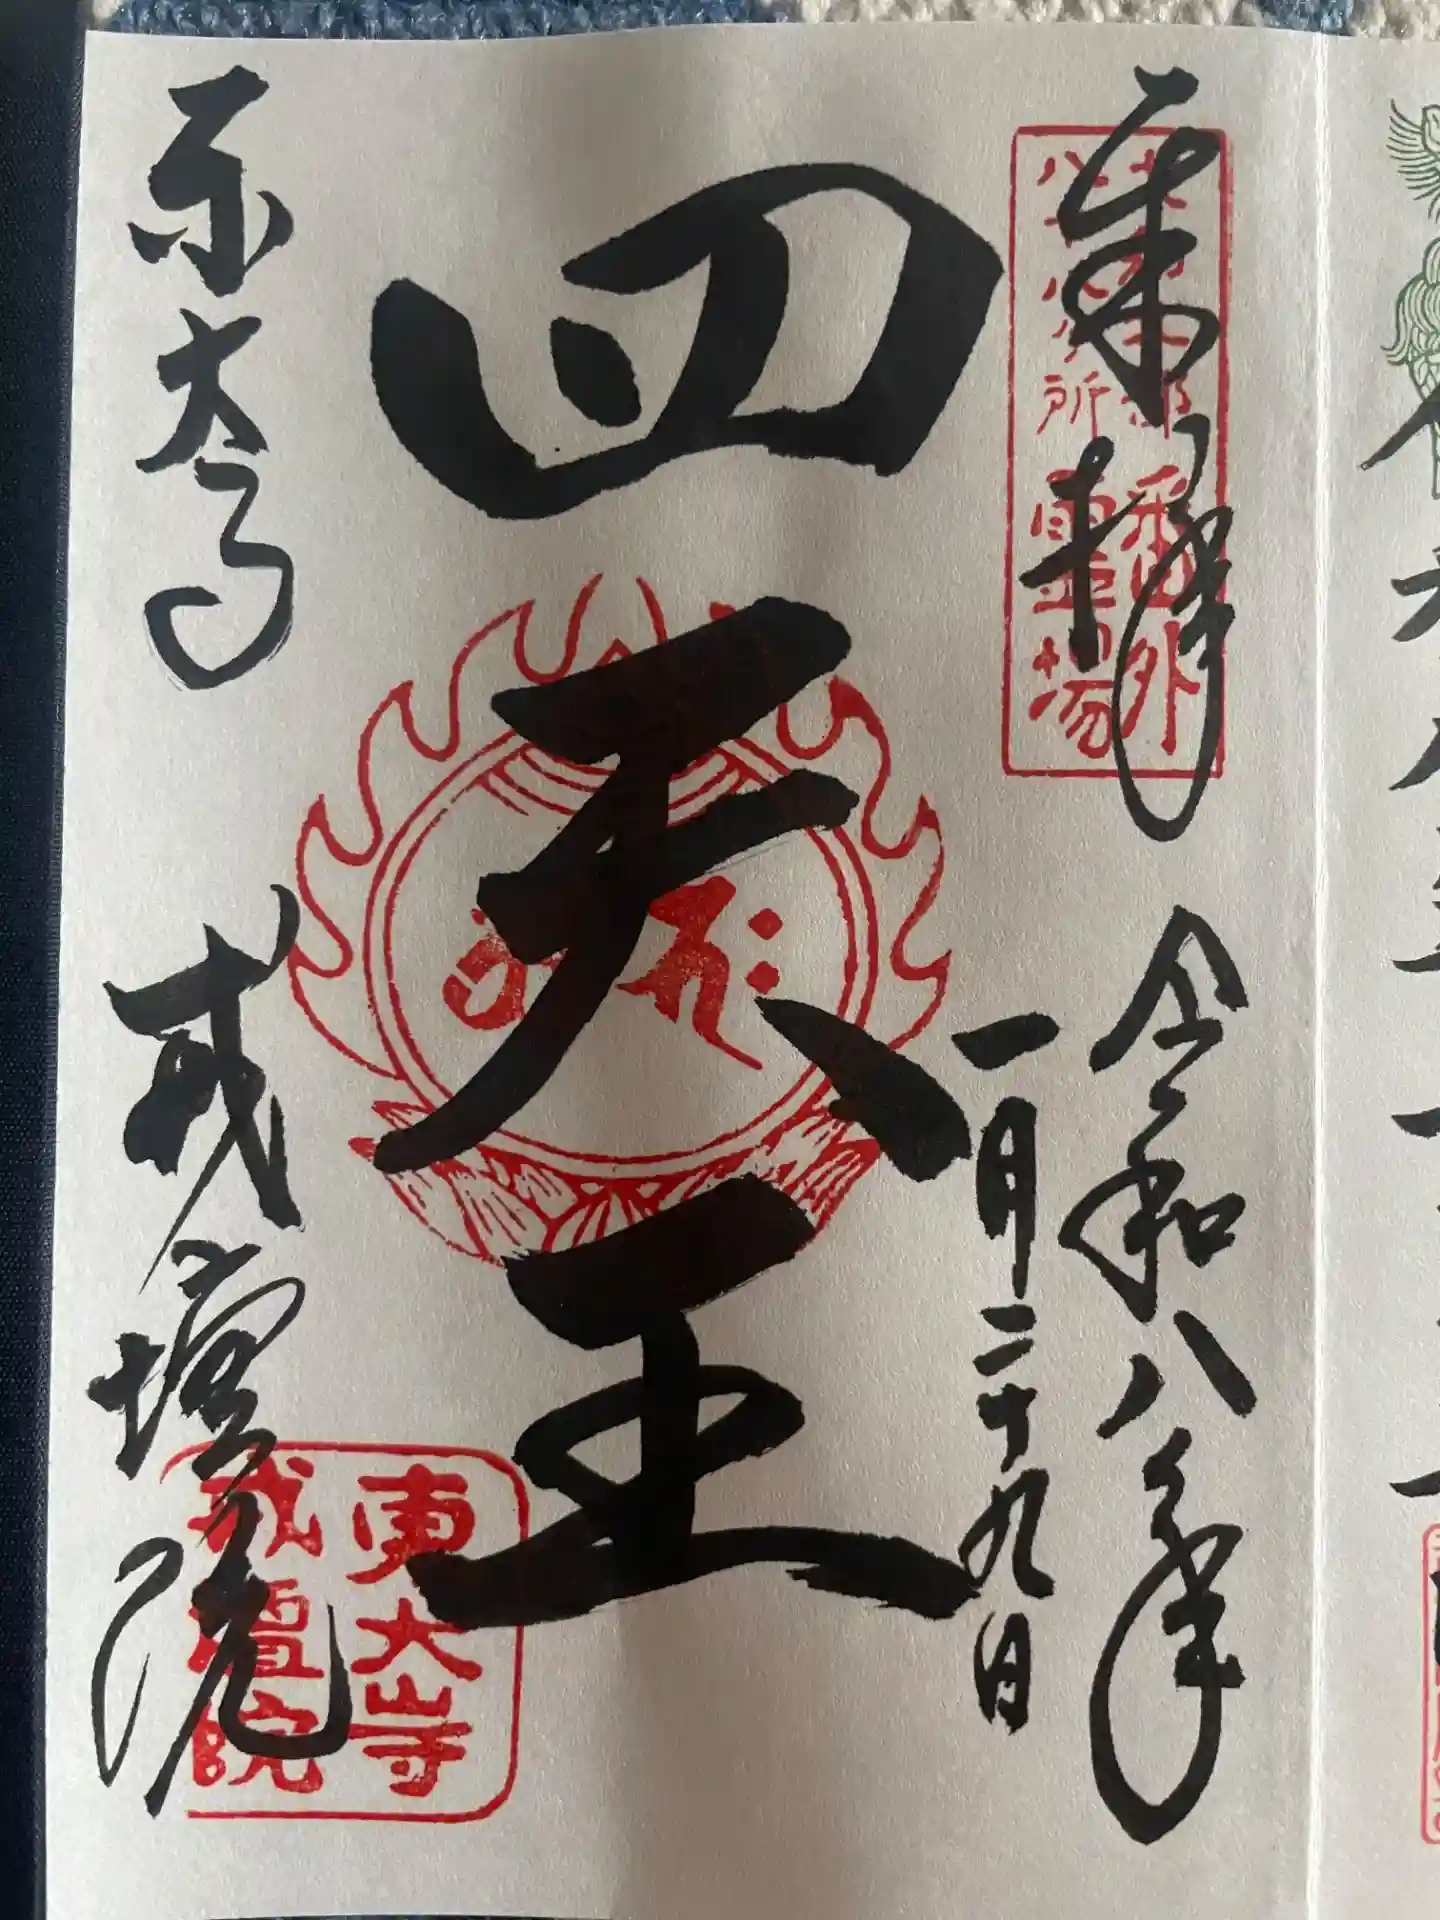 奉拝
令和八年
一月二十九日
四天王
東大寺
戒壇院
番外
八十八ヶ所霊場
東大寺
戒壇院